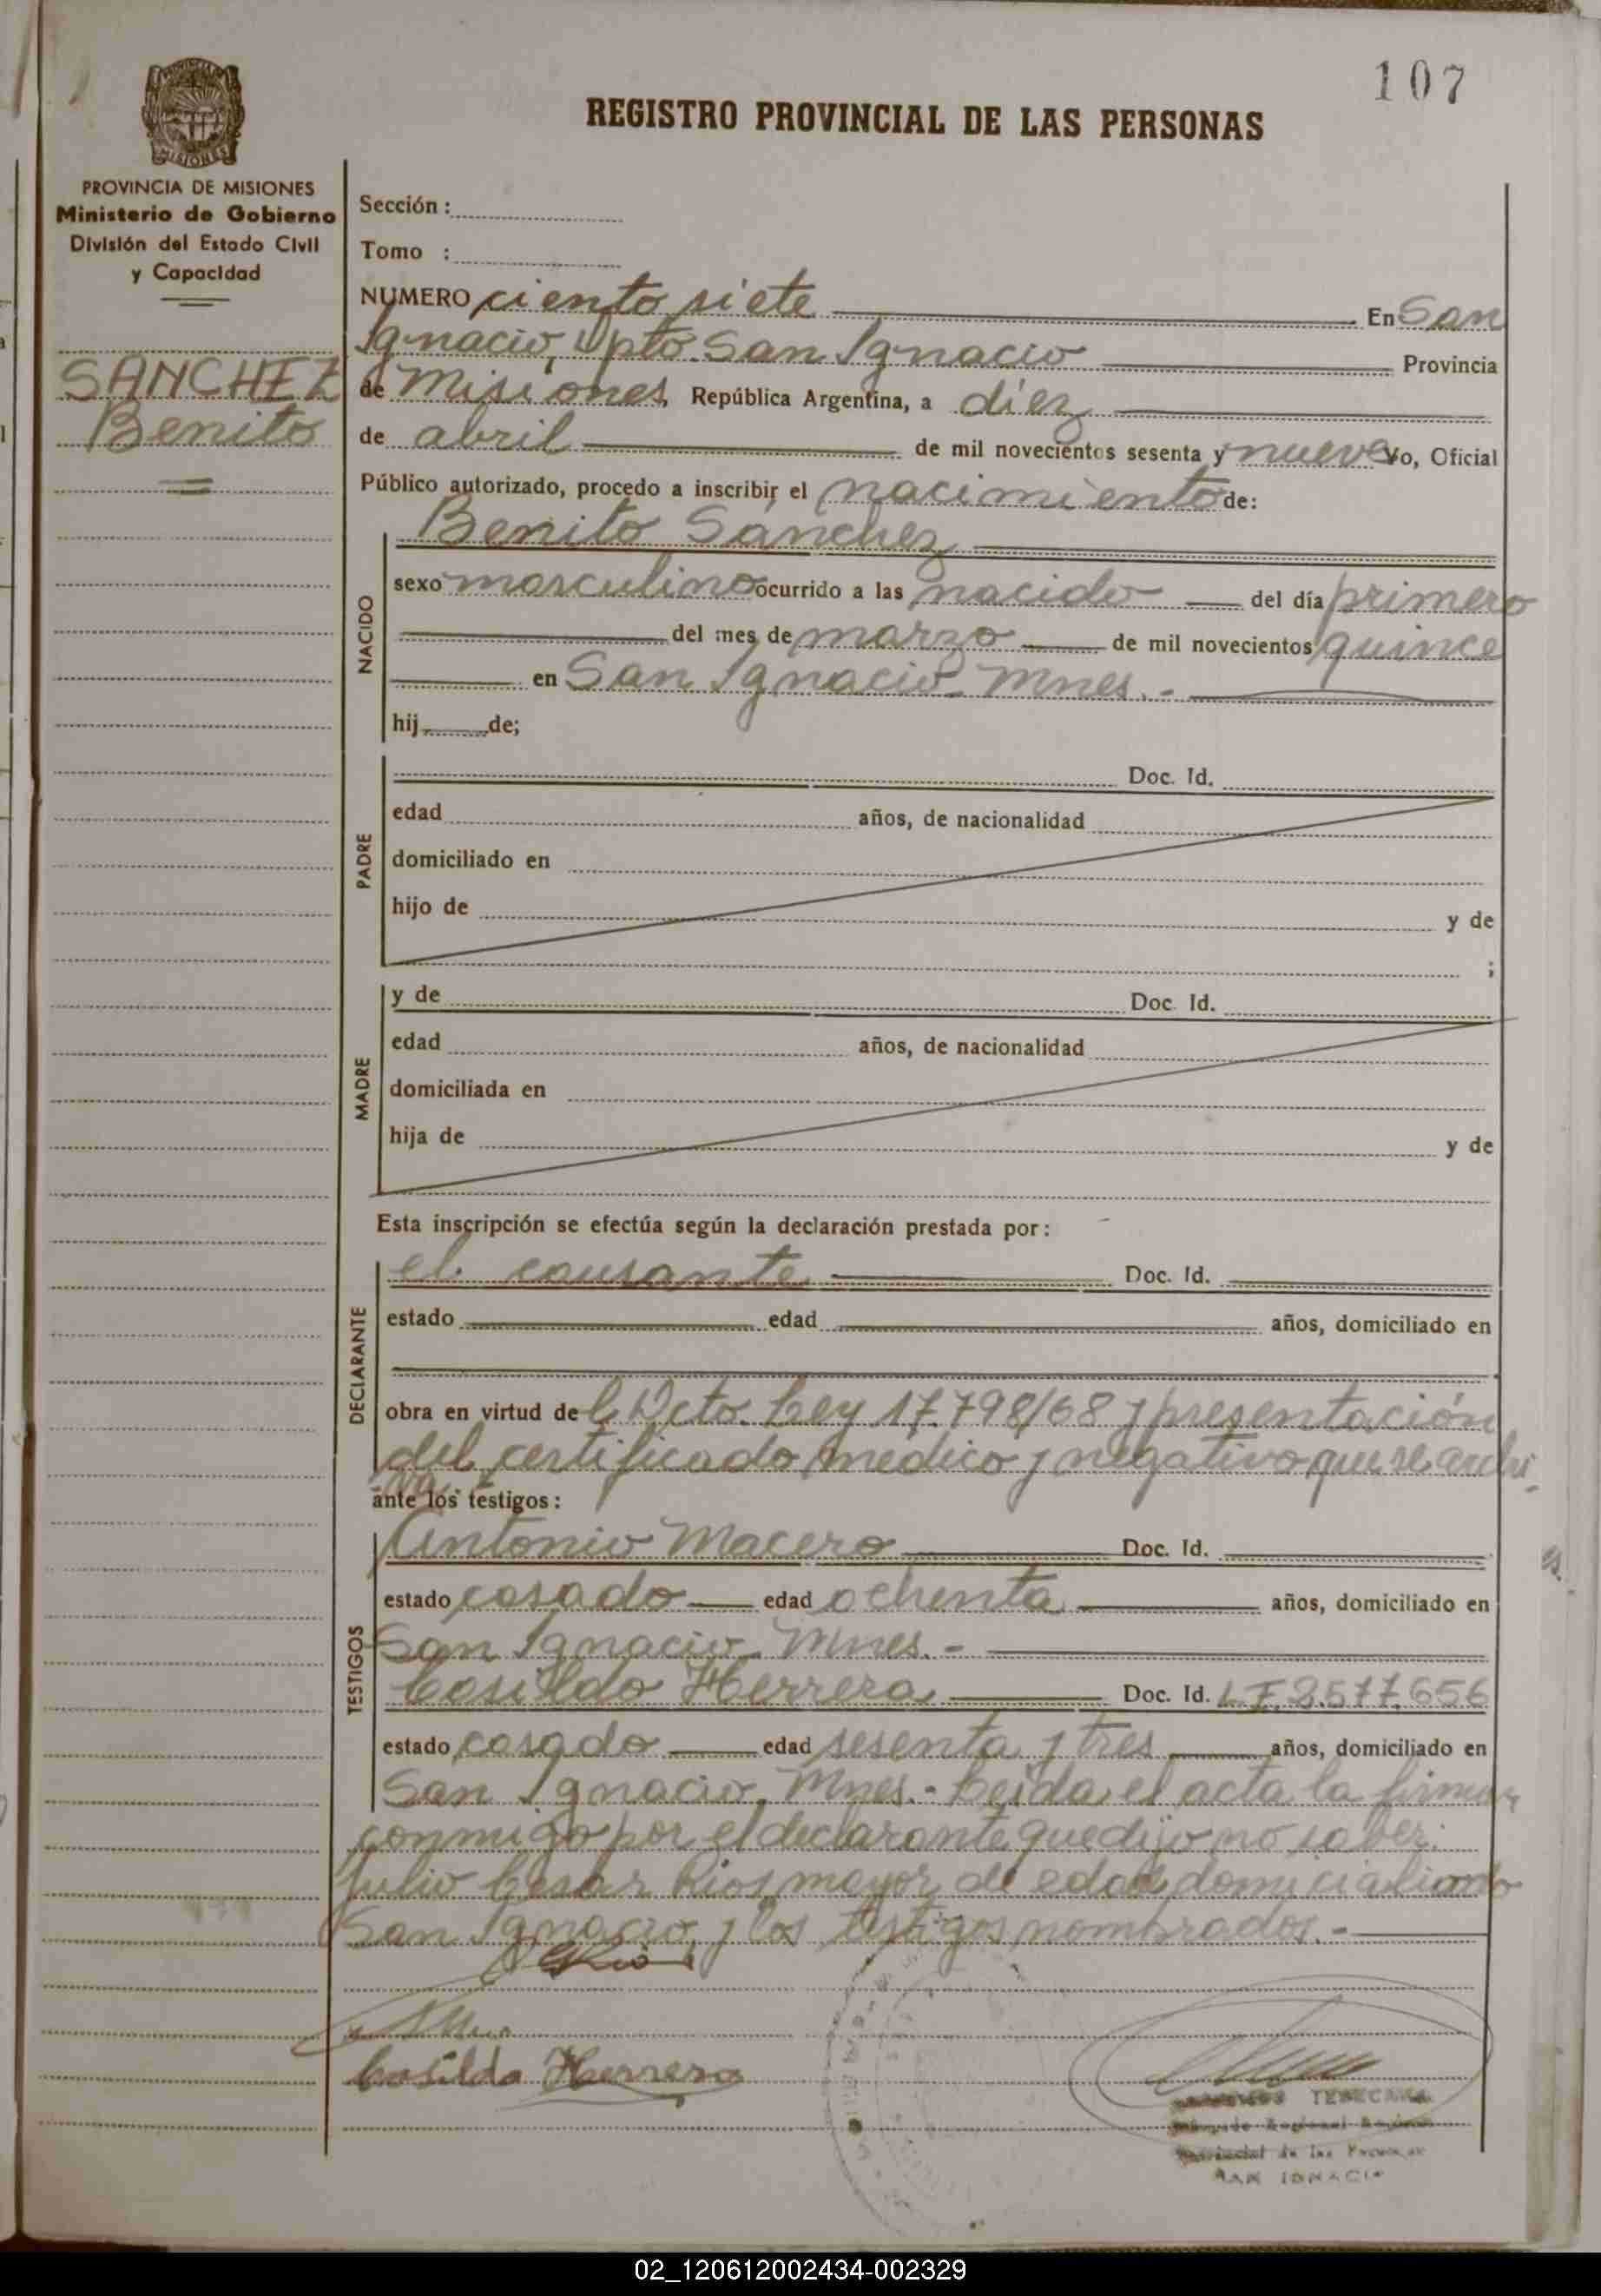 107
REGISTRO PROVINCIAL DE LAS PERSONAS
PROVINCIA DE MISIONES
MISIONES
PROVINCIA DE MISIONES
Ministerio de Gobierno
División del Estado Civil
y Capacidad
SANCHEZ
Benito
Sección :
Tomo :
NUMERO ciento siete En San
Ignacio, Dpto San Ignacio Provincia
de Misiones, República Argentina, a diez
de abril de mil novecientos sesenta y nueve Yo, Oficial
Público autorizado, procedo a inscribir el nacimiento de:
NACIDO
Benito Sánchez
sexo masculino ocurrido a las nacido del día primero
del mes de marzo de mil novecientos quince
en San Ignacio - Mnes. -
hij de;
PADRE
Doc. Id.
edad años, de nacionalidad
domiciliado en
hijo de y de
;
MADRE
y de Doc. Id.
edad años, de nacionalidad
domiciliada en
hija de y de
Esta inscripción se efectúa según la declaración prestada por :
DECLARANTE
el causante Doc. Id.
estado edad años, domiciliado en
obra en virtud de Dcto. Ley 17.798/68 y presentación
del certificado médico y negativo que se archi-
va
ante los testigos :
TESTIGOS
Antonio Macero Doc. Id.
estado casado edad ochenta años, domiciliado en
San Ignacio. Mnes. -
Casildo Herrera Doc. Id. 8.577.656
estado casado edad sesenta y tres años, domiciliado en
San Ignacio, Mnes. - Leida el acta la firman
conmigo por el declarante que dijo no saber:
Julio Cesar Rios mayor de edad,
San Ignacio, y los testigos nombrados. -
Casildo Herrera
SAN IGNACIO
02_120612002434-002329